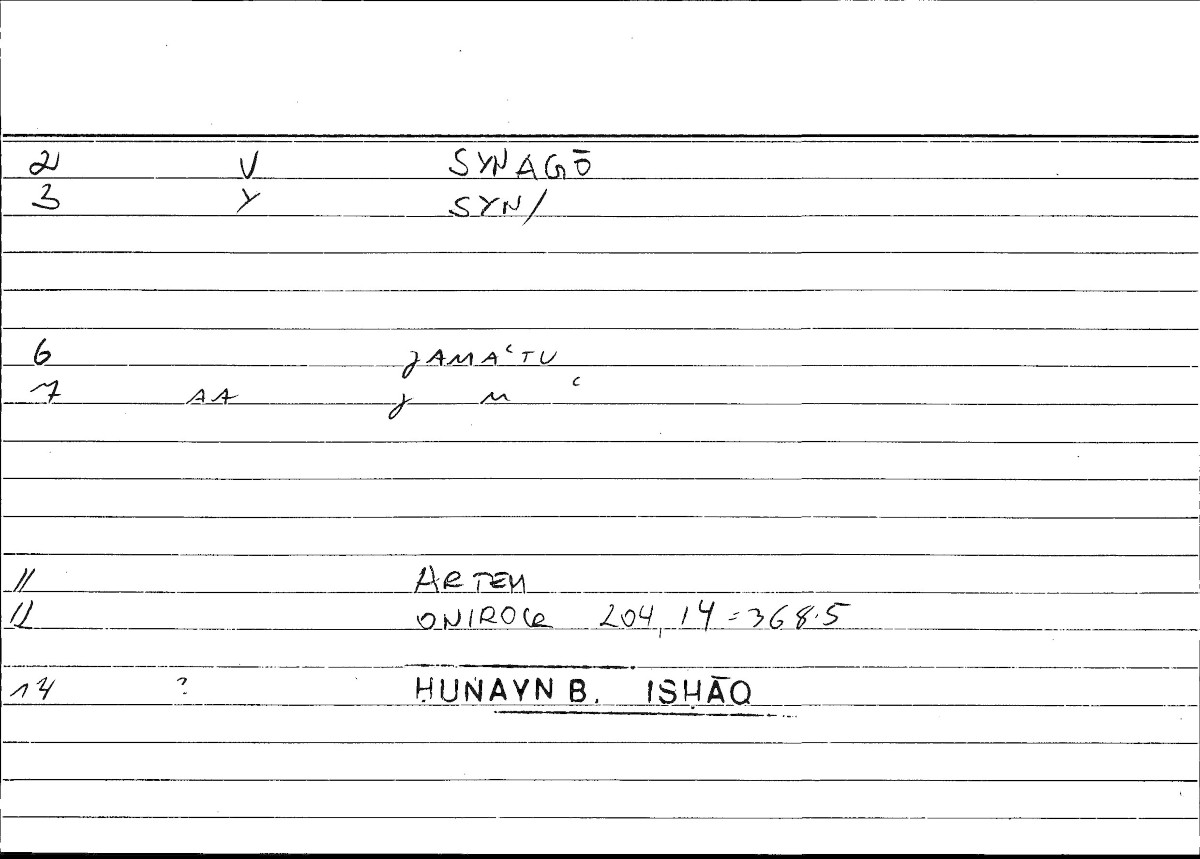 2 V SYNAGŌ
3 Y SYN/
6 JAMAʿTU
7 AA J M ʿ
11 ARTEM
12 ONIROCR 204,14=368.5
14 ? ḤUNAYN B. ISḤĀQ